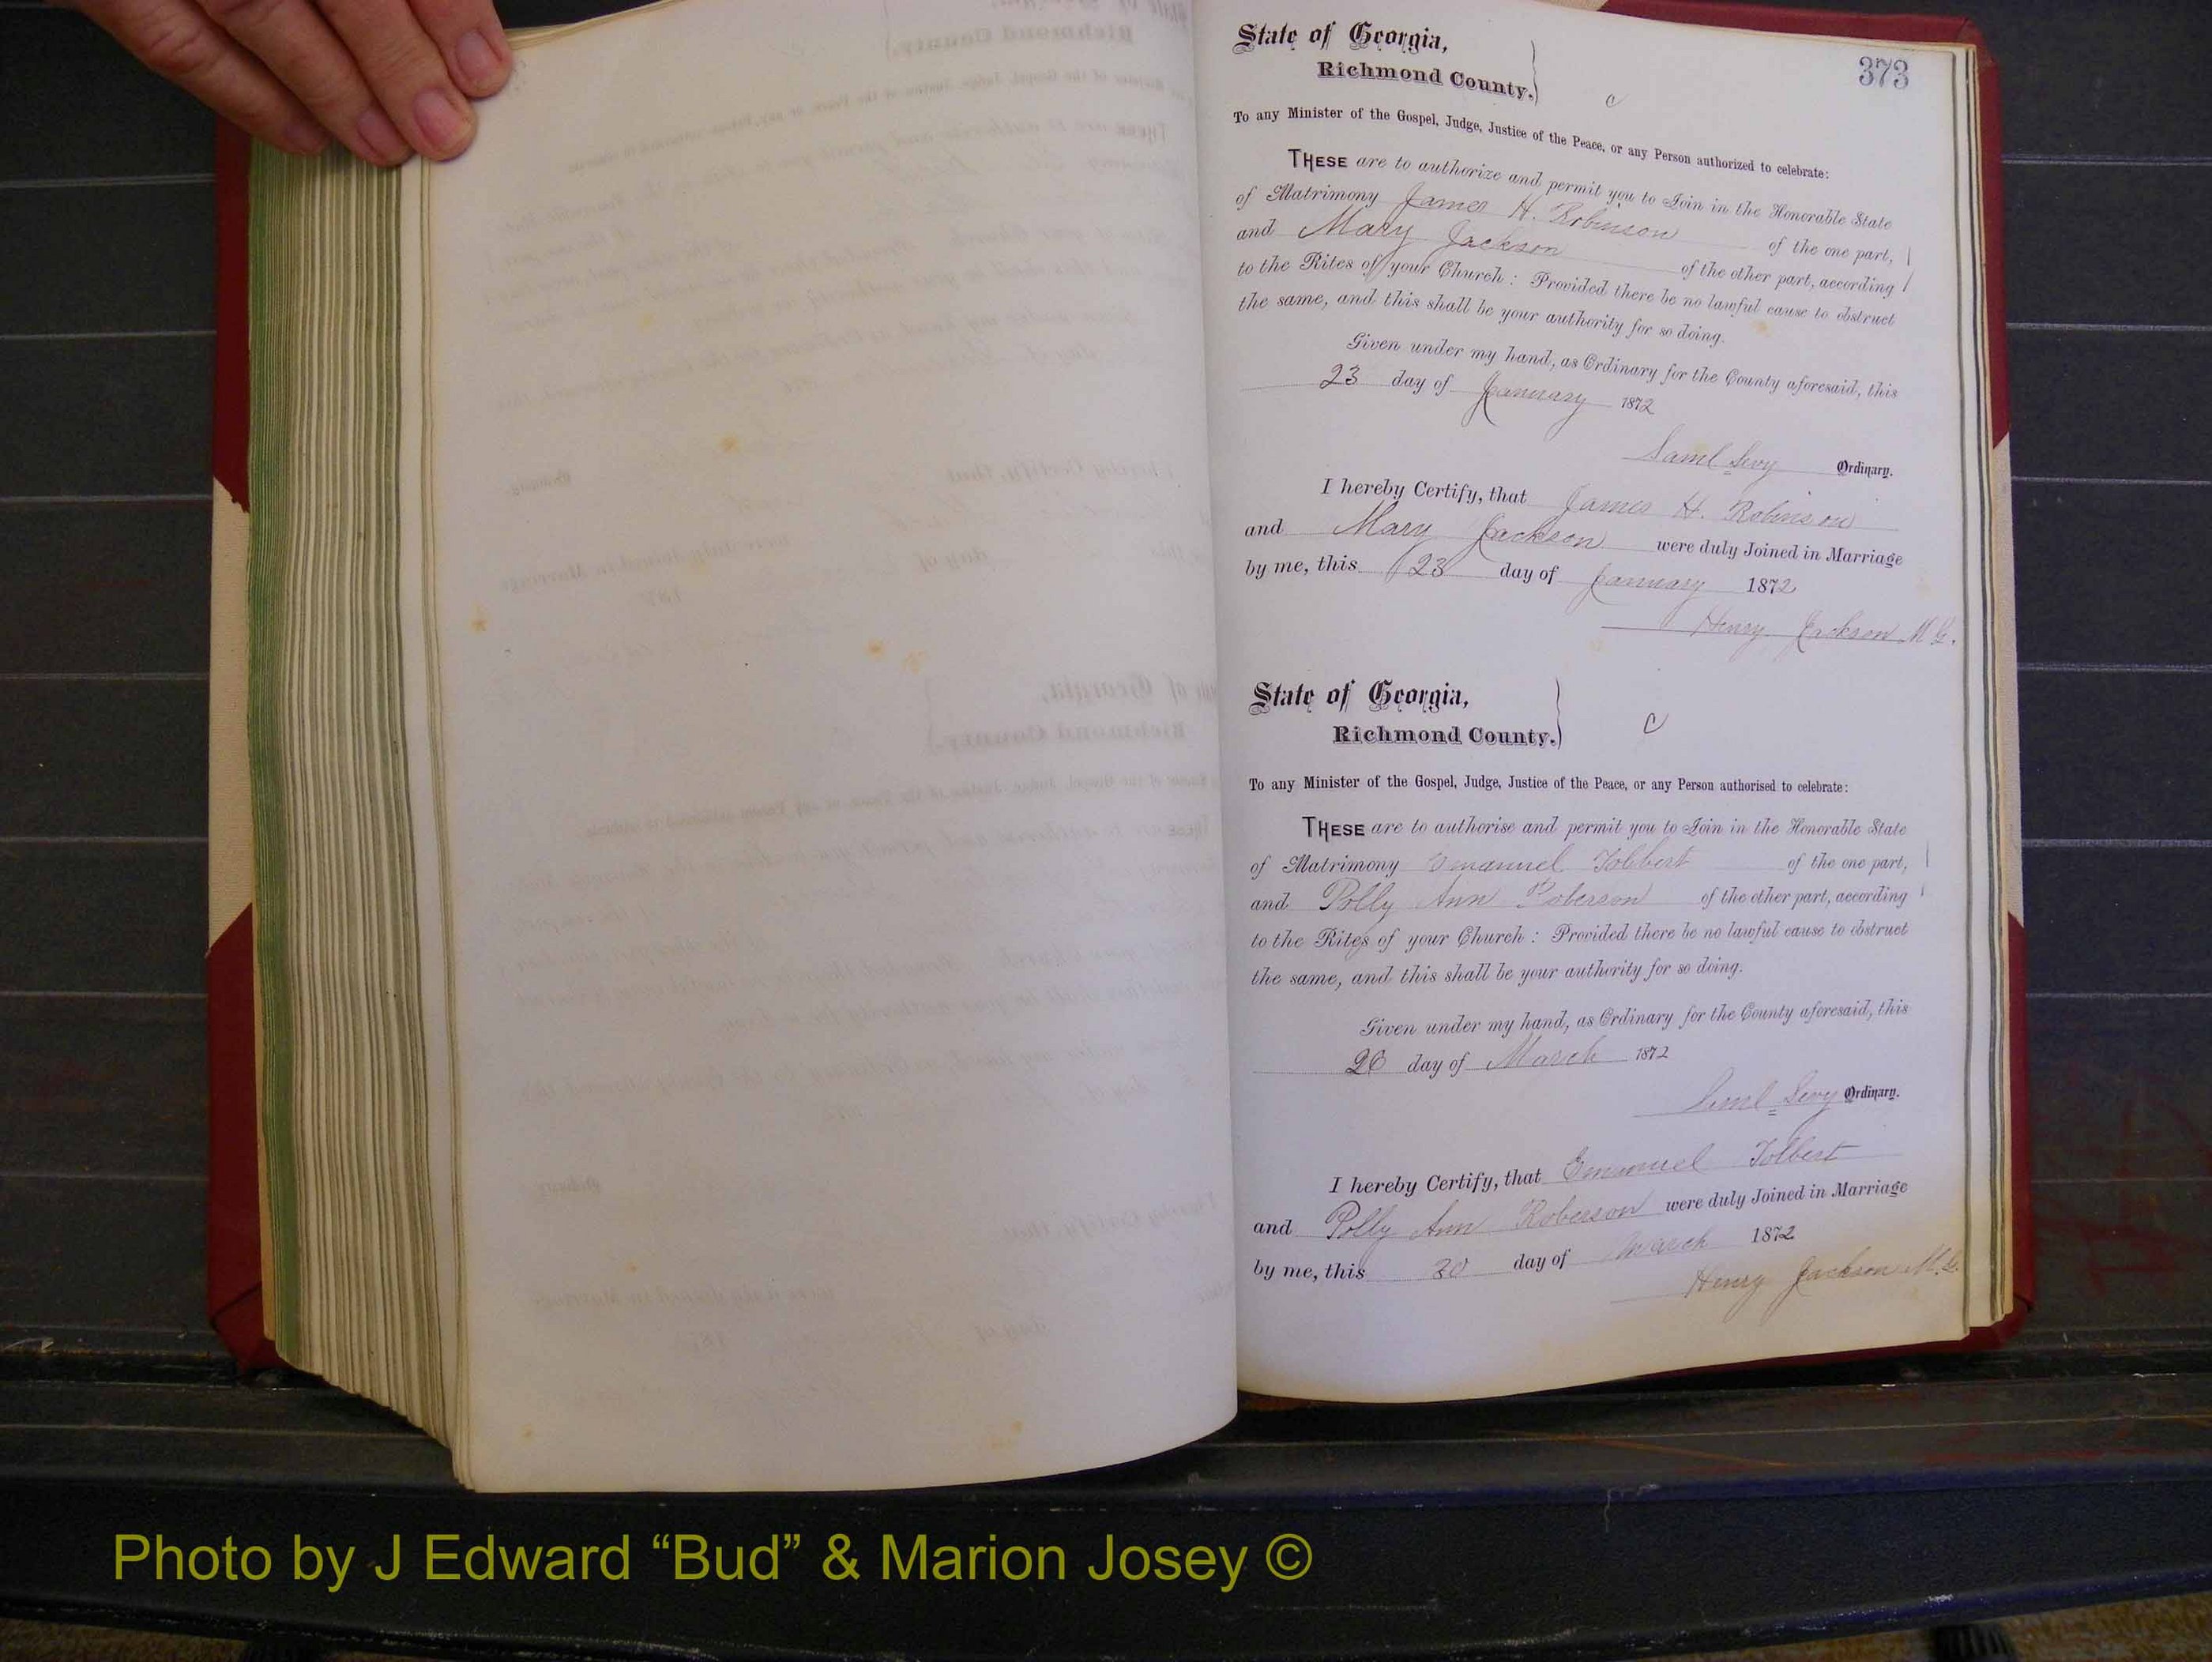 373
State of Georgia,
Richmond County.
C
To any Minister of the Gospel, Judge, Justice of the Peace, or any Person authorized to celebrate:
THESE are to authorize and permit you to Join in the Honorable State
of Matrimony James H. Robinson of the one part,
and Mary Jackson of the other part, according
to the Rites of your Church: Provided there be no lawful cause to obstruct
the same, and this shall be your authority for so doing.
Given under my hand, as Ordinary for the County aforesaid, this
23 day of January 1872
Saml Levy Ordinary.
I hereby Certify, that James H. Robinson
and Mary Jackson were duly Joined in Marriage
by me, this 23 day of January 1872
Henry Jackson M.G.
State of Georgia,
Richmond County.
C
To any Minister of the Gospel, Judge, Justice of the Peace, or any Person authorised to celebrate:
THESE are to authorise and permit you to Join in the Honorable State
of Matrimony Emanuel Tolbert of the one part,
and Polly Ann Roberson of the other part, according
to the Rites of your Church: Provided there be no lawful cause to obstruct
the same, and this shall be your authority for so doing.
Given under my hand, as Ordinary for the County aforesaid, this
26 day of March 1872
Saml Levy Ordinary.
I hereby Certify, that Emanuel Tolbert
and Polly Ann Roberson were duly Joined in Marriage
by me, this 30 day of March 1872
Henry Jackson M.G.
Photo by J Edward “Bud” & Marion Josey ©